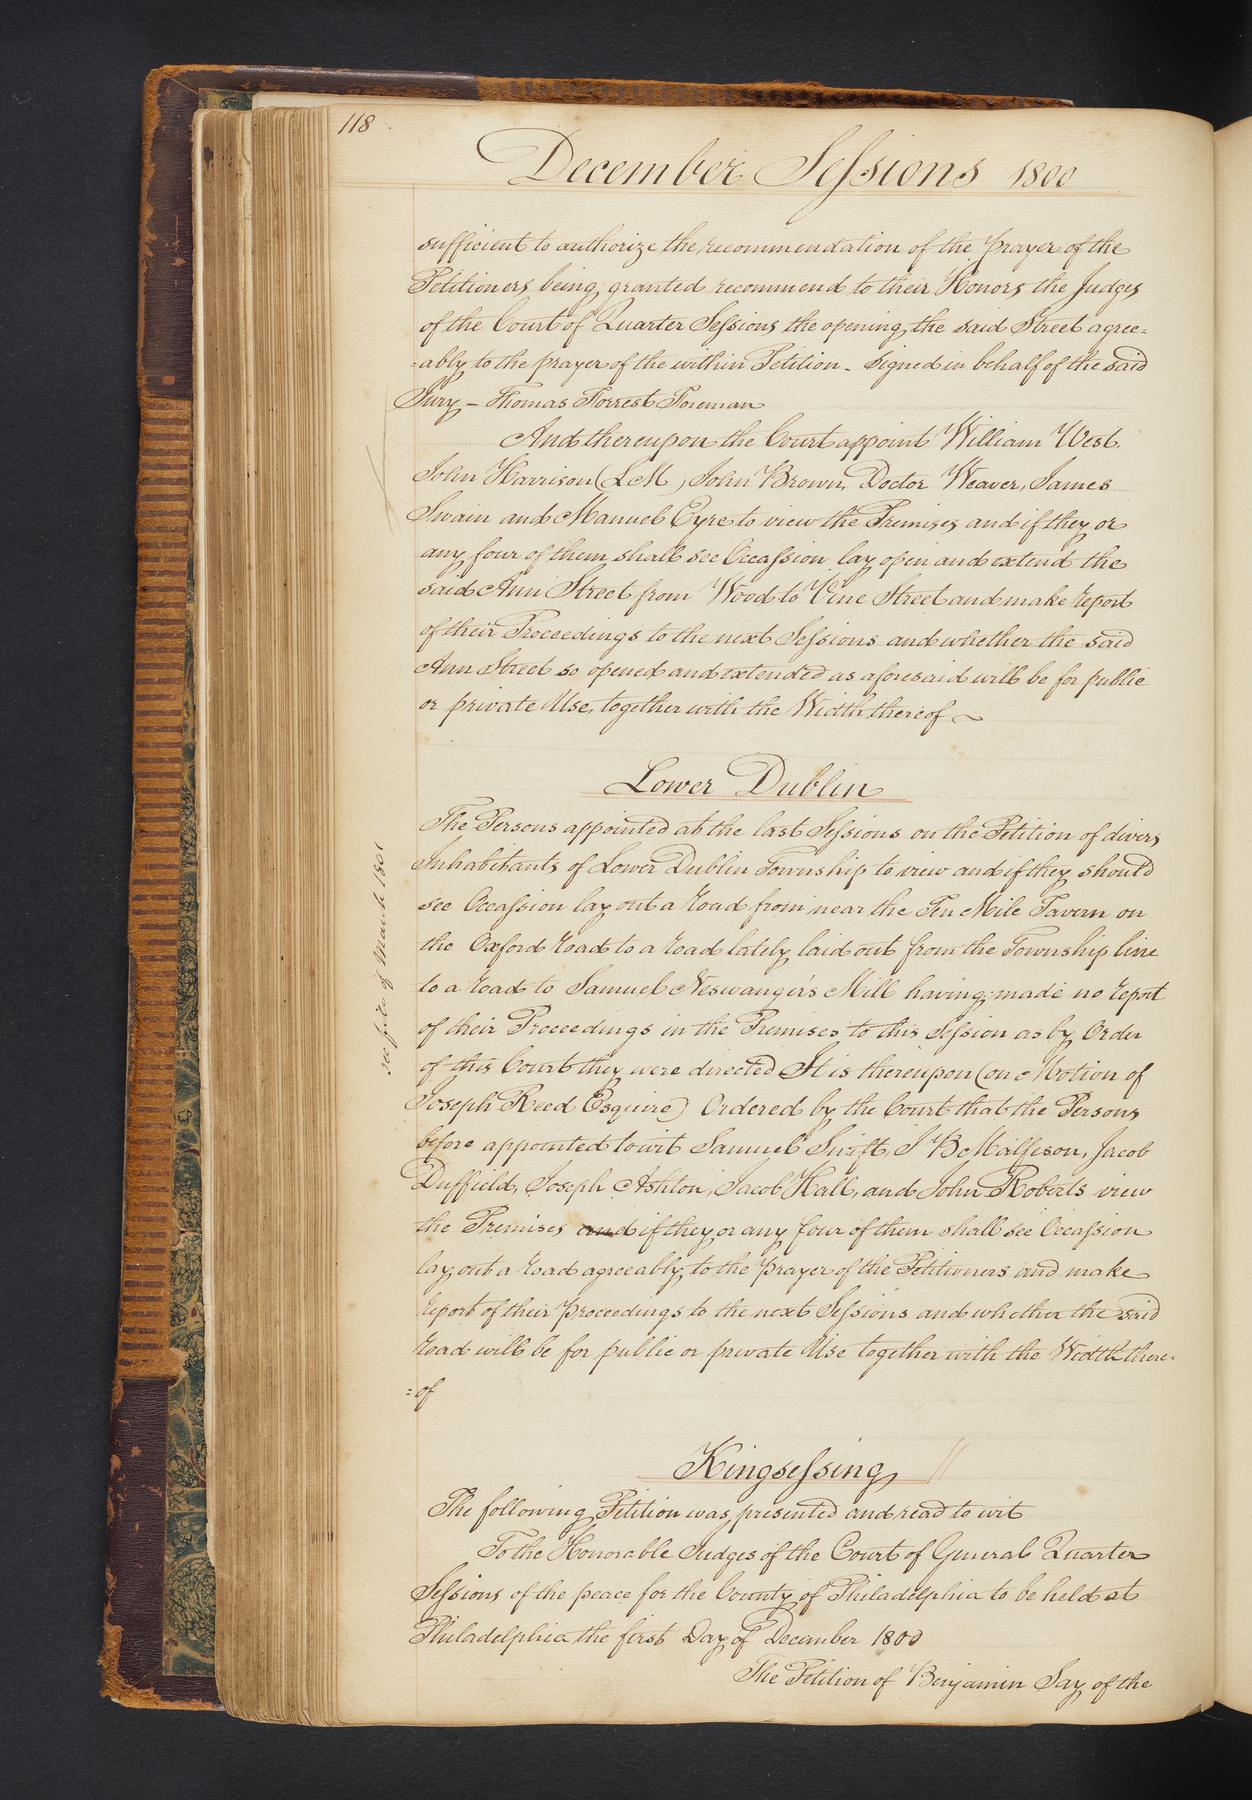 118
December Sessions 1800
sufficient to authorize the recommendation of the prayer of the
Petitioners being granted recommend to their Honors the Judges
of the Court of Quarter Sessions the opening the said Street agree=
=ably to the prayer of the within Petition - Signed in behalf of the said
Jury - Thomas Forrest Foreman
And thereupon the Court appoint William West
John Harrison (LM) John Brown, Doctor Weaver, James
Swain and Manuel Eyre to view the Premises and if they or
any four of them shall see Occassion lay open and extend the
said Ann Street from Wood to Vine Street and make report
of their Proceedings to the next Sessions and whether the said
Ann Street so opened and extended as aforesaid will be for public
or private Use, together with the Width thereof
Lower Dublin
The Persons appointed at the last Sessions on the Petition of divers
Inhabitants of Lower Dublin Township to view and if they should
see Occassion lay out a Road from near the Ten Mile Tavern on
the Oxford Road to a road lately laid out from the Township line
to a road to Samuel Neswanger's Mill having made no report
of their Proceedings in the Premises to this Session as by Order
of this Court they were directed It is thereupon (on Motion of
Joseph Reed Esquire) Ordered by the Court that the Persons
before appointed to wit Samuel Swift, J B Malfeson, Jacob
Duffield, Joseph Ashton, Jacob Hall, and John Roberts view
the Premises and if they or any four of them shall see Occassion
lay out a road agreeably to the prayer of the Petitioners and make
report of their proceedings to the next Sessions and whether the said
road will be for public or private Use together with the Width there=
=of
see file of March 1801
Kingsessing
The following Petition was presented and read to wit
To the Honorable Judges of the Court of General Quarter
Sessions of the peace for the County of Philadelphia to be held at
Philadelphia the first Day of December 1800
The Petition of Benjamin Say of the